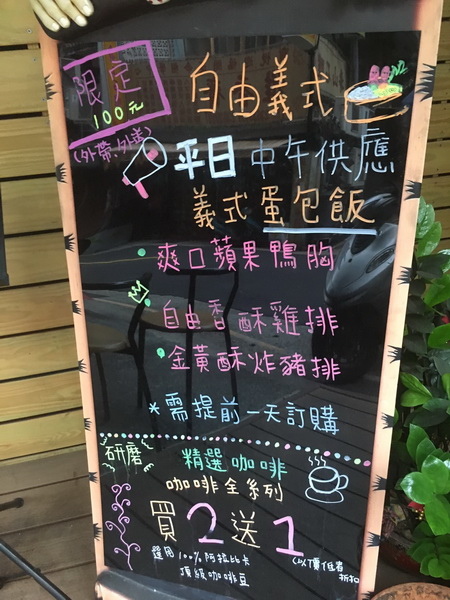 限定
100元
(外帶.外送)
自由義式
平日中午供應
義式蛋包飯
爽口蘋果鴨胸
自由香酥雞排
金黃酥炸豬排
*需提前一天訂購
研磨
精選咖啡
咖啡全系列
買2送1
選用100%阿拉比卡
頂級咖啡豆
(以價低者
折扣